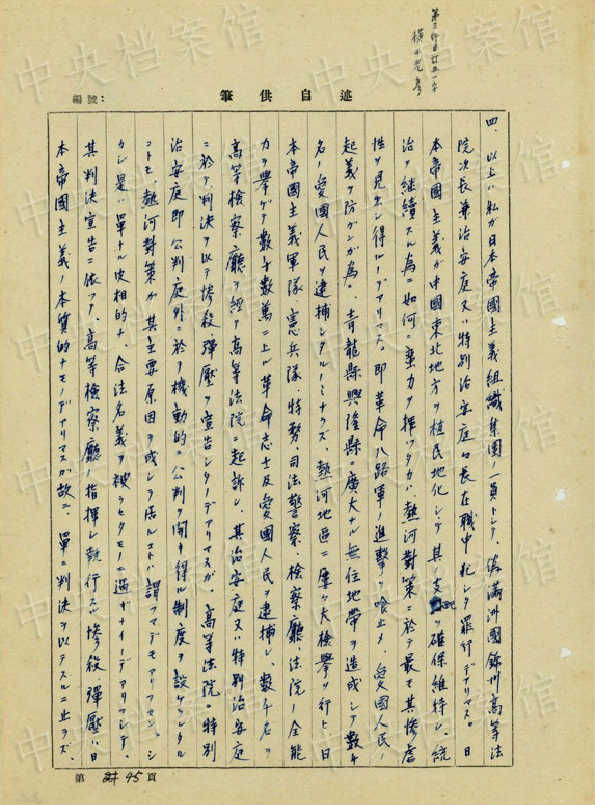 第三行目訂正一字
編號：
筆供自述
四、以上ハ私ガ日本帝國主義組織集團ノ一員トシテ、偽滿洲國錦州高等法
院次長兼治安庭又ハ特別治安庭々長在職中犯シタ罪行デアリマス。日
本帝國主義ガ中國東北地方ヲ植民地化シテ其ノ支配ヲ確保維持シ、統
治ヲ継續スル為ニ如何ニ暴力ヲ揮ツタカハ熱河對策ニ於テ最モ其惨虐
性ヲ見出シ得ルノデアリマス。即革命八路軍ノ進擊ヲ喰止メ、愛國人民ノ
起義ヲ防ガンガ為、青龍縣興隆縣ニ廣大ナル無住地帶ヲ造成シテ数千
名ノ愛國人民ヲ逮捕シタルノミナラズ、熱河地區ニ屢々大檢擧ヲ行ヒ、日
本帝國主義軍隊、憲兵隊、特務、司法警察、檢察廳、法院ノ全能
力ヲ擧ゲテ数千数萬ニ上ル革命志士及愛國人民ヲ逮捕シ、数千名ヲ
高等檢察廳ヲ經テ高等法院ニ起訴シ、其治安庭又ハ特別治安庭
ニ於テ判決ヲ以テ惨殺彈壓ヲ宣告シタノデアリマスガ、高等法院ノ特別
治安庭即公判庭外ニ於テ機動的ニ公判ヲ開キ得ル制度ヲ設ケラレタル
コトモ、熱河對策ガ其主要原因ヲ成シテ居ルコトハ謂フマデモアリマセン。シ
カシ是ハ單ナル皮相的ナ、合法名義ヲ被ラセタモノニ過ギナイノデアリマシテ、
其判決宣告ニ依ツテ、高等檢察廳ノ指揮シ執行スル惨殺、彈壓ハ日
本帝國主義ノ本質的ナモノデアリマスガ故ニ、單ニ判決ヲ以テスルニ止ラズ、
第 45 頁
中央档案馆
中央档案馆
中央档案馆
中央档案馆
中央档案馆
中央档案馆
中央档案馆
中央档案馆
中央档案馆
中央档案馆